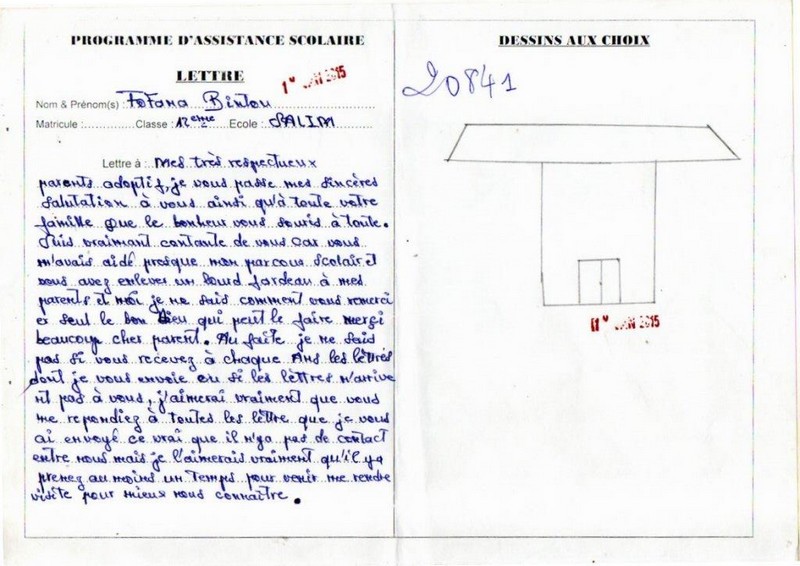 PROGRAMME D'ASSISTANCE SCOLAIRE
LETTRE
1er JAN 2015
Nom & Prénom(s) : Fofana Bintou
Matricule : Classe : 12eme Ecole : SALIM
Lettre à : Mes très respectueux
parents adoptif, je vous passe mes sincères
Salutation à vous ainsi qu'à toute votre
famille que le bonheur vous souris à toute.
Suis vraimant contante de vous car vous
m'avais aidé presque mon parcous scolair et
vous avez enlever un lourd fardeau à mes
parents et moi je ne sais comment vous remerci
er seul le bon Dieu qui peut le faire merçi
beaucoup cher parent. Au faite je ne sais
pas si vous recevez à chaque Ans les lettres
dont je vous envoie ou si les lettres n'arrive
nt pas à vous, j'aimerai vraiment que vous
me repondiez à toutes les lettre que je vous
ai envoyé ce vrai que il n'ya pas de contact
entre nous mais je l'aimerais vraiment qu'il ya
prenez au moins un Temps pour venir me rendre
visite pour mieux nous connaitre.
DESSINS AUX CHOIX
20841
JAN 2015